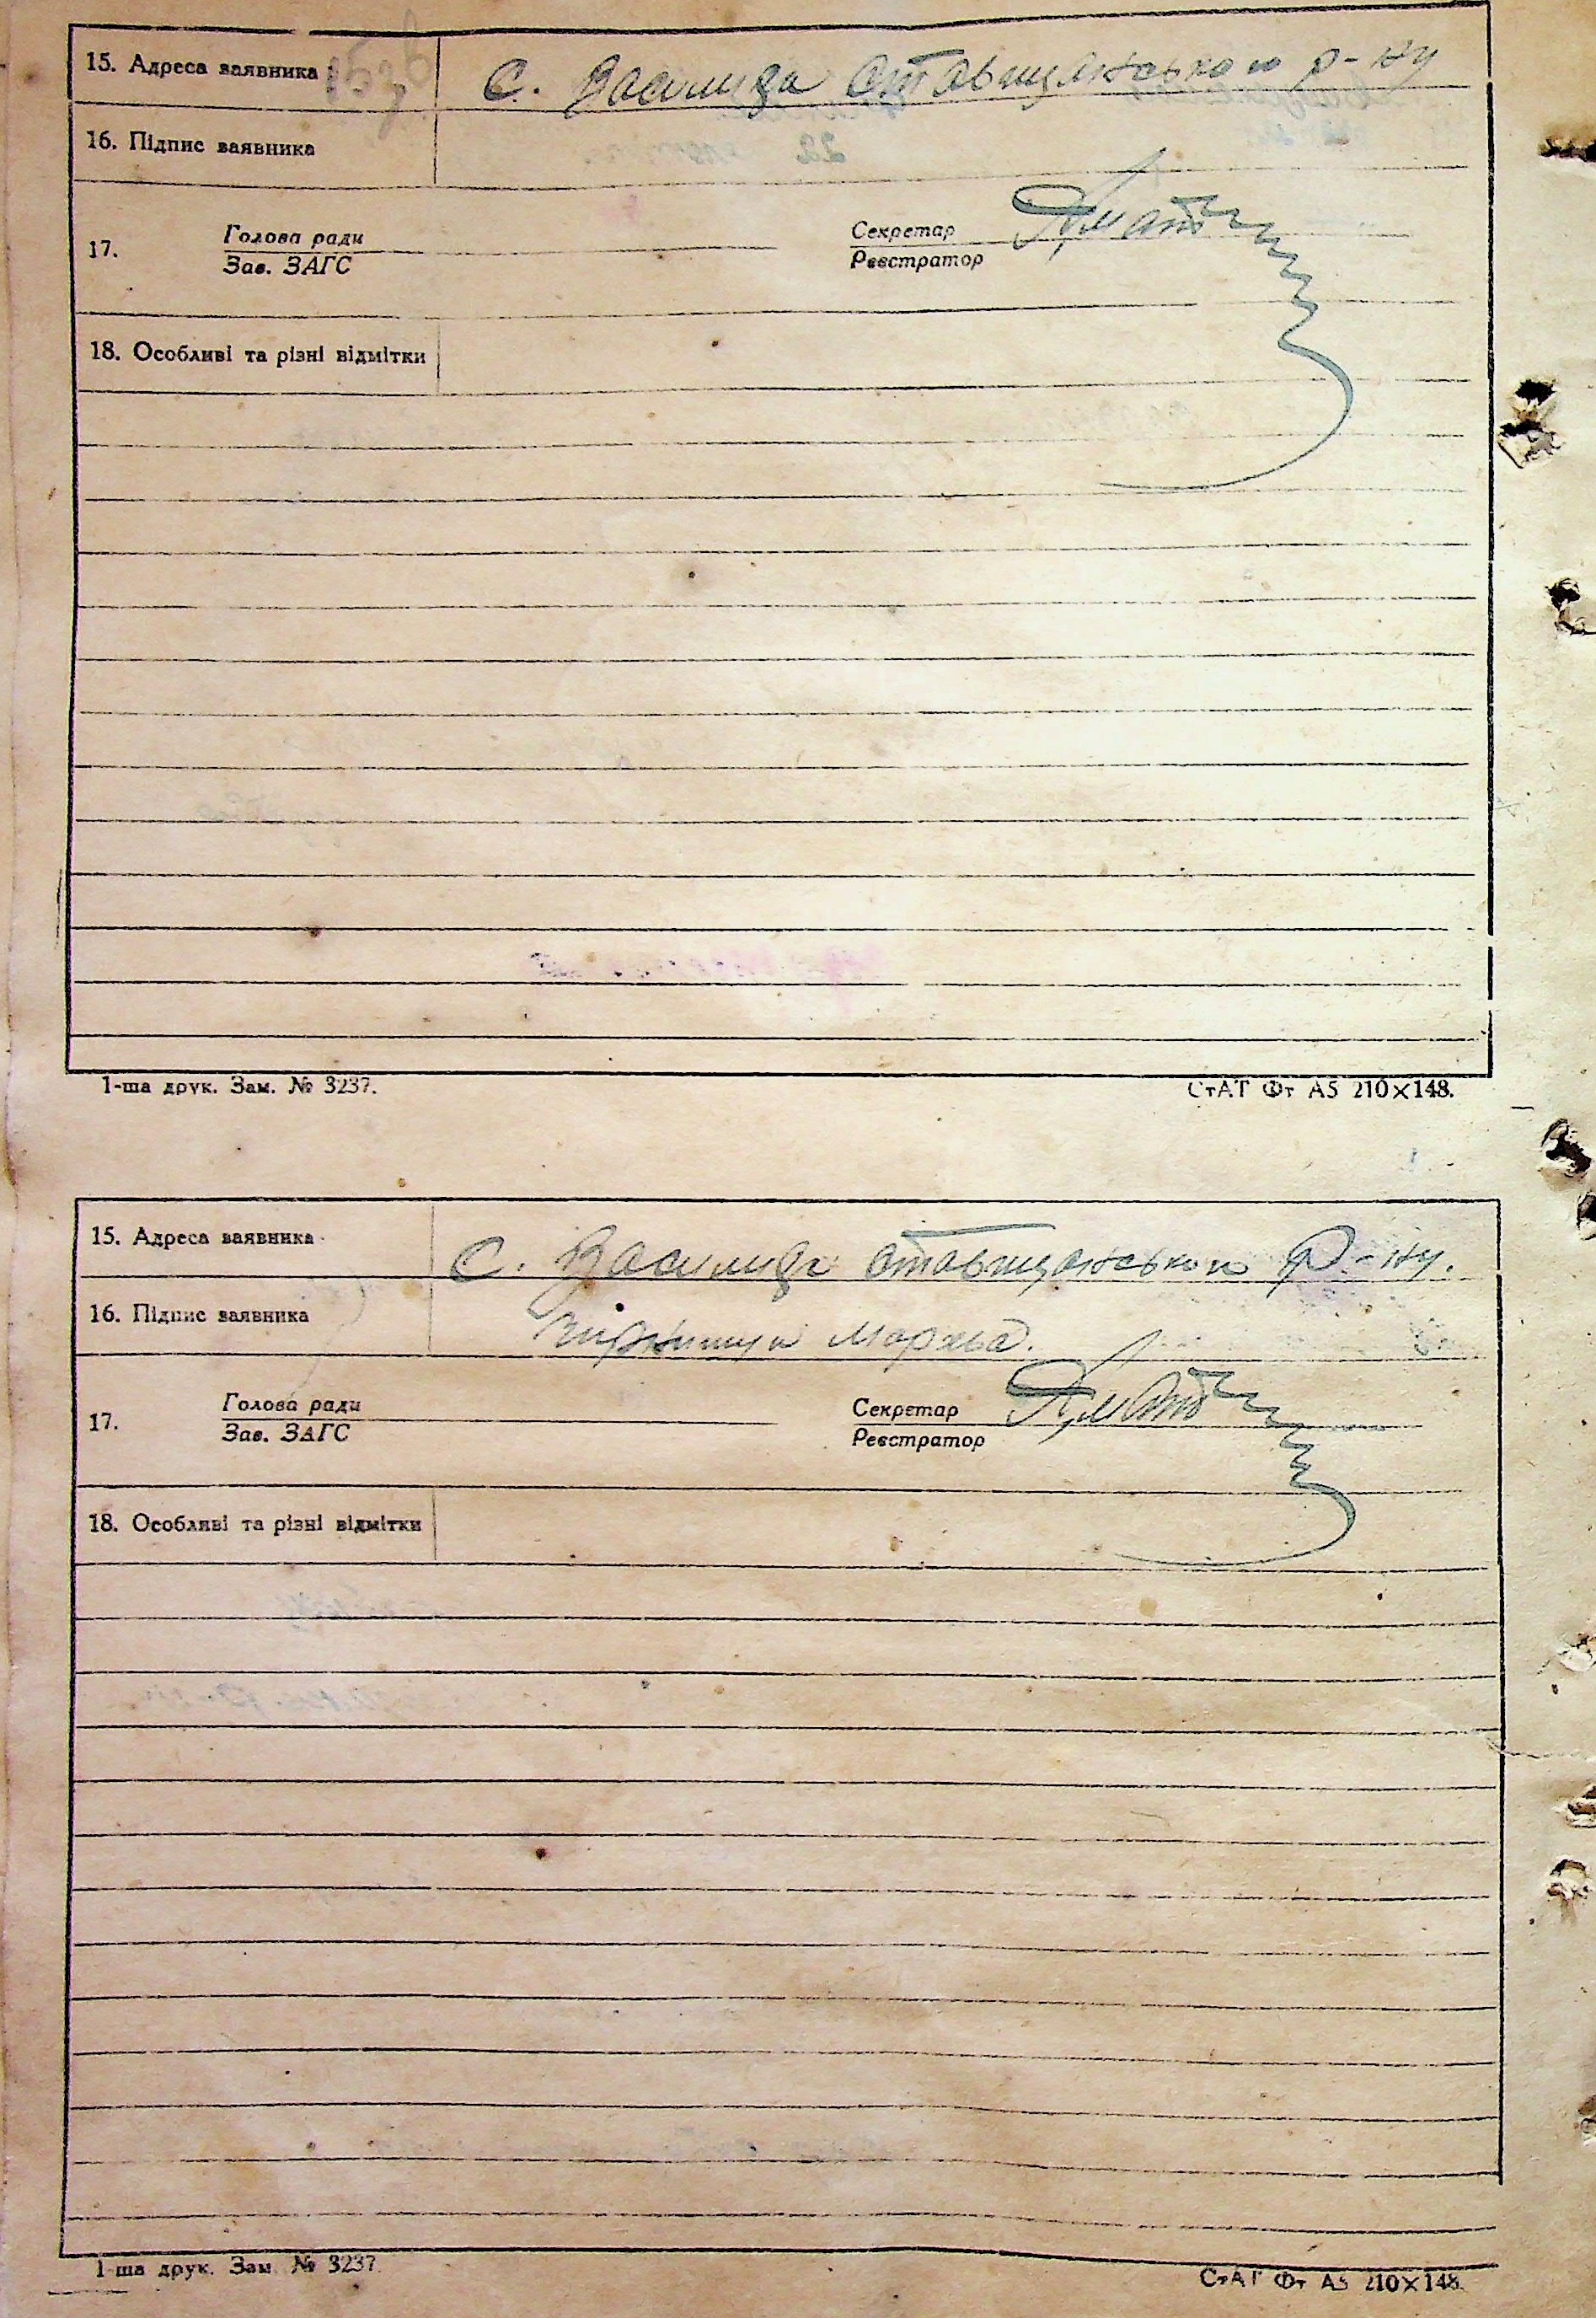 15. Адреса заявника
с. Василиха Ставищанського р-ну
16. Підпис заявника
17.
Голова ради
Зав. ЗАГС
Секретар
Реєстратор
18. Особливі та різні відмітки
1-ша друк. Зам. № 3237.
СтАТ Фт А5 210×148.
15. Адреса заявника
с. Василиха Ставищанського р-ну.
16. Підпис заявника
17.
Голова ради
Зав. ЗАГС
Секретар
Реєстратор
18. Особливі та різні відмітки
1-ша друк. Зам. № 3237.
СтАТ Фт А5 210×148.